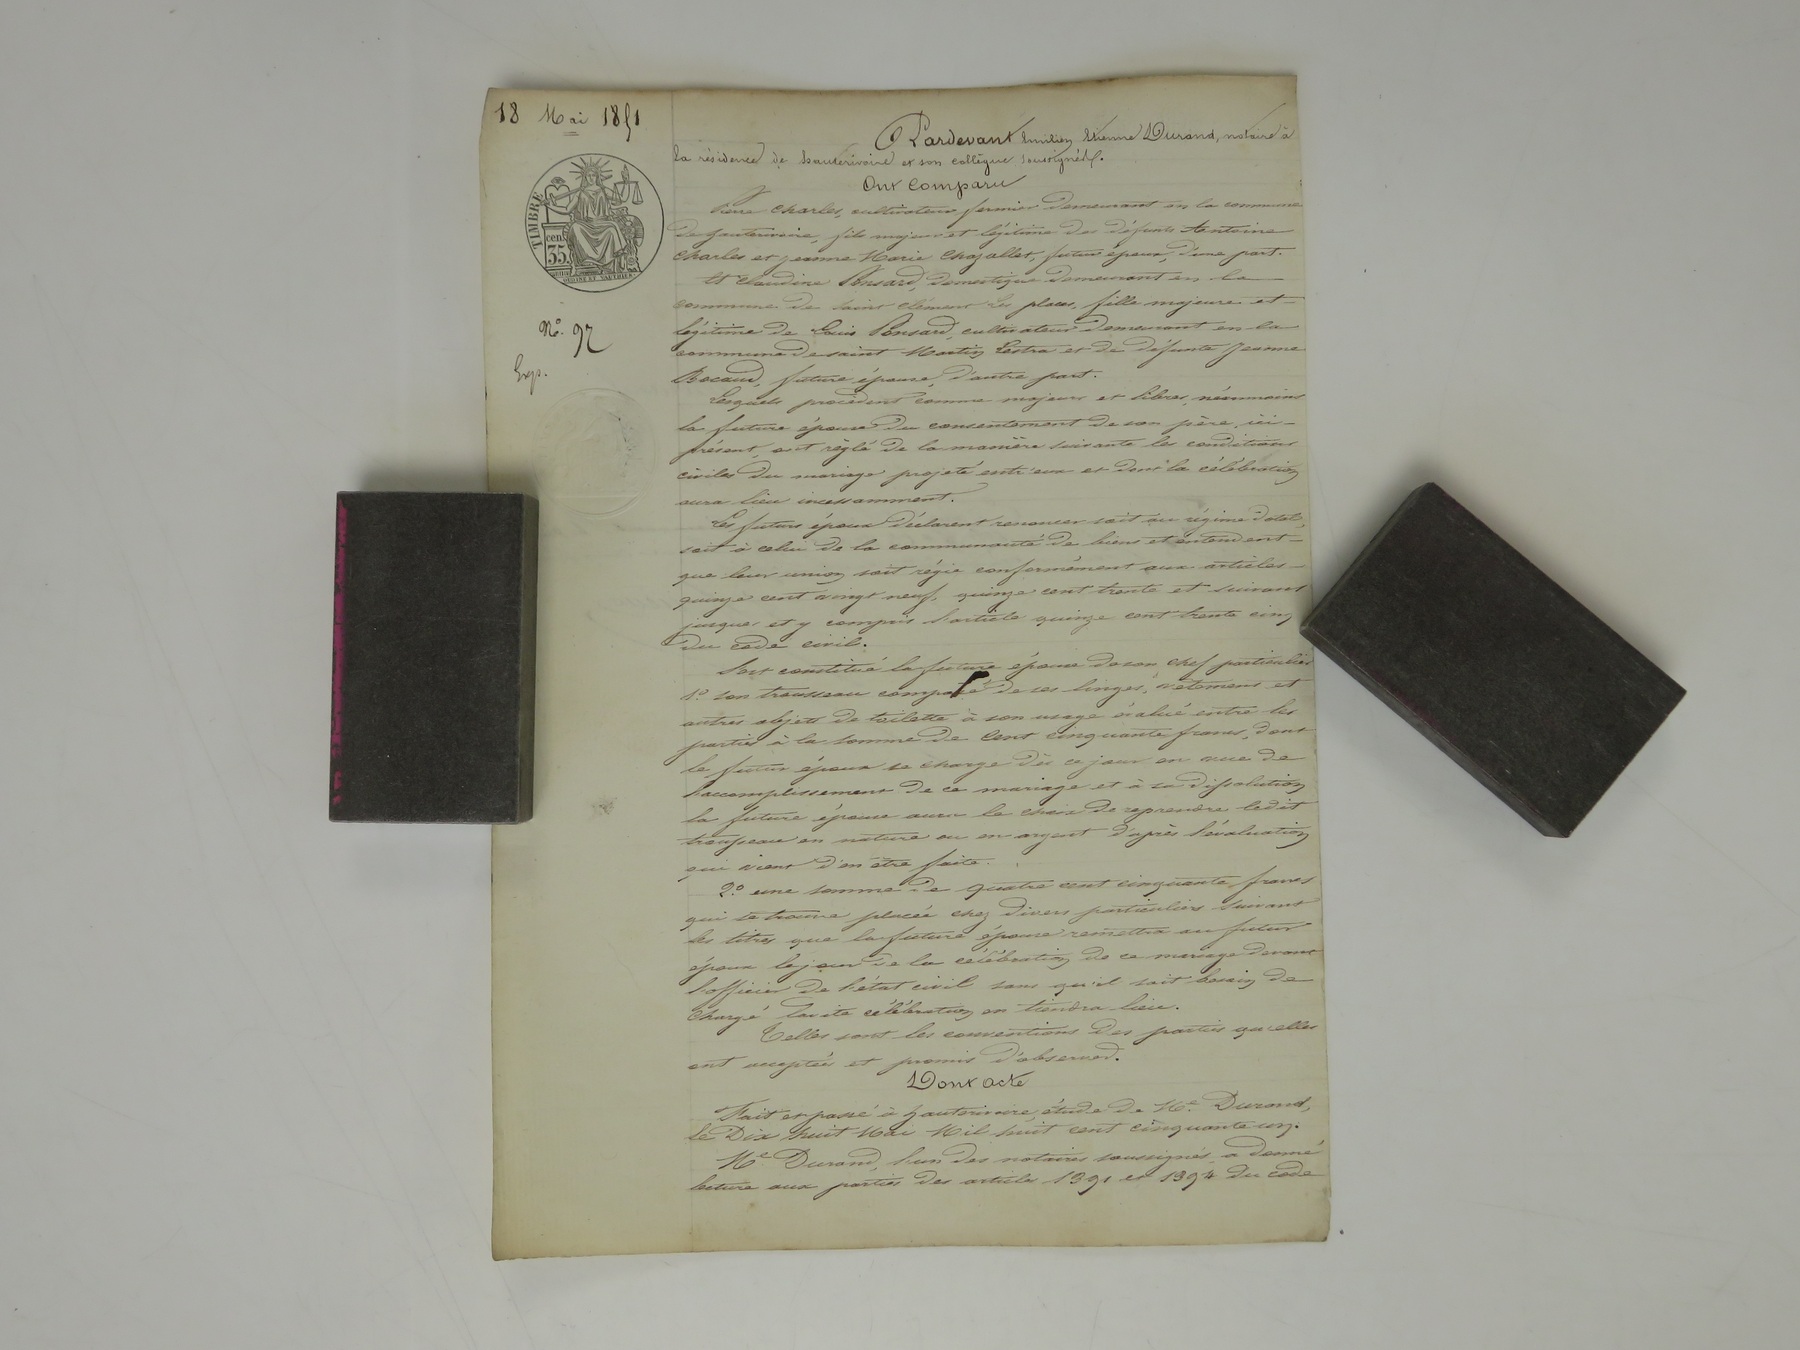 18 Mai 1851
TIMBRE
cent.
35
Nº. 97
Exp.
Pardevant Emilien Etienne Durand, notaire à
la résidence de hauterivoire et son collègue soussignés.
Ont Comparu
Pierre Charles, cultivateur fermier demeurant en la commune
de hauterivoire, fils majeur et légitime des défunts Antoine
Charles et jeanne Marie Chazallet, futur époux, d'une part.
Et Claudine Ponsard, domestique demeurant en la
commune de saint Clément les places, fille majeure et
légitime de Louis Ponsard, cultivateur demeurant en la
commune de saint Martin Lestra et de défunte Jeanne
future épouse, d'autre part.
Lesquels procèdent comme majeurs et libres, néanmoins
la future épouse du consentement de son père, ici
présent, ont réglé de la manière suivante les conditions
civiles du mariage projeté entr'eux et dont la célébration
aura lieu incessamment.
Les futurs époux déclarent renoncer soit au régime dotal,
soit à celui de la communauté de biens et entendent
que leur union soit régie conformément aux articles
quinze cent vingt neuf, quinze cent trente et suivant
jusques et y compris l'article quinze cent trente cinq
du code civil.
Sort constitué la future épouse de son chef particulier
1º son trousseau composé de ses linges, vêtemens et
autres objets de toilette à son usage évalué entre les
parties à la somme de Cent cinquante francs, dont
le futur époux se charge dès ce jour en vue de
l'accomplissement de ce mariage et à sa dissolution
la future épouse aura le choix de reprendre ledit
trousseau en nature ou en argent d'après l'évaluation
qui vient d'en être faite.
2º une somme de quatre cent cinquante francs
qui se trouve placée chez divers particuliers suivant
les titres que la future épouse remettra au futur
époux le jour de la célébration de ce mariage devant
l'officier de l'état civil sans qu'il soit besoin de
chargé laite célébration en tiendra lieu.
Telles sont les conventions des parties qu'elles
ont acceptées et promis d'observer.
Dont acte
Fait et passé à hauterivoire, étude de Me. Durand,
le Dix huit Mai Mil huit cent cinquante un.
Me. Durand, l'un des notaires soussignés, a donné
lecture aux parties des articles 1391 et 1394 du code